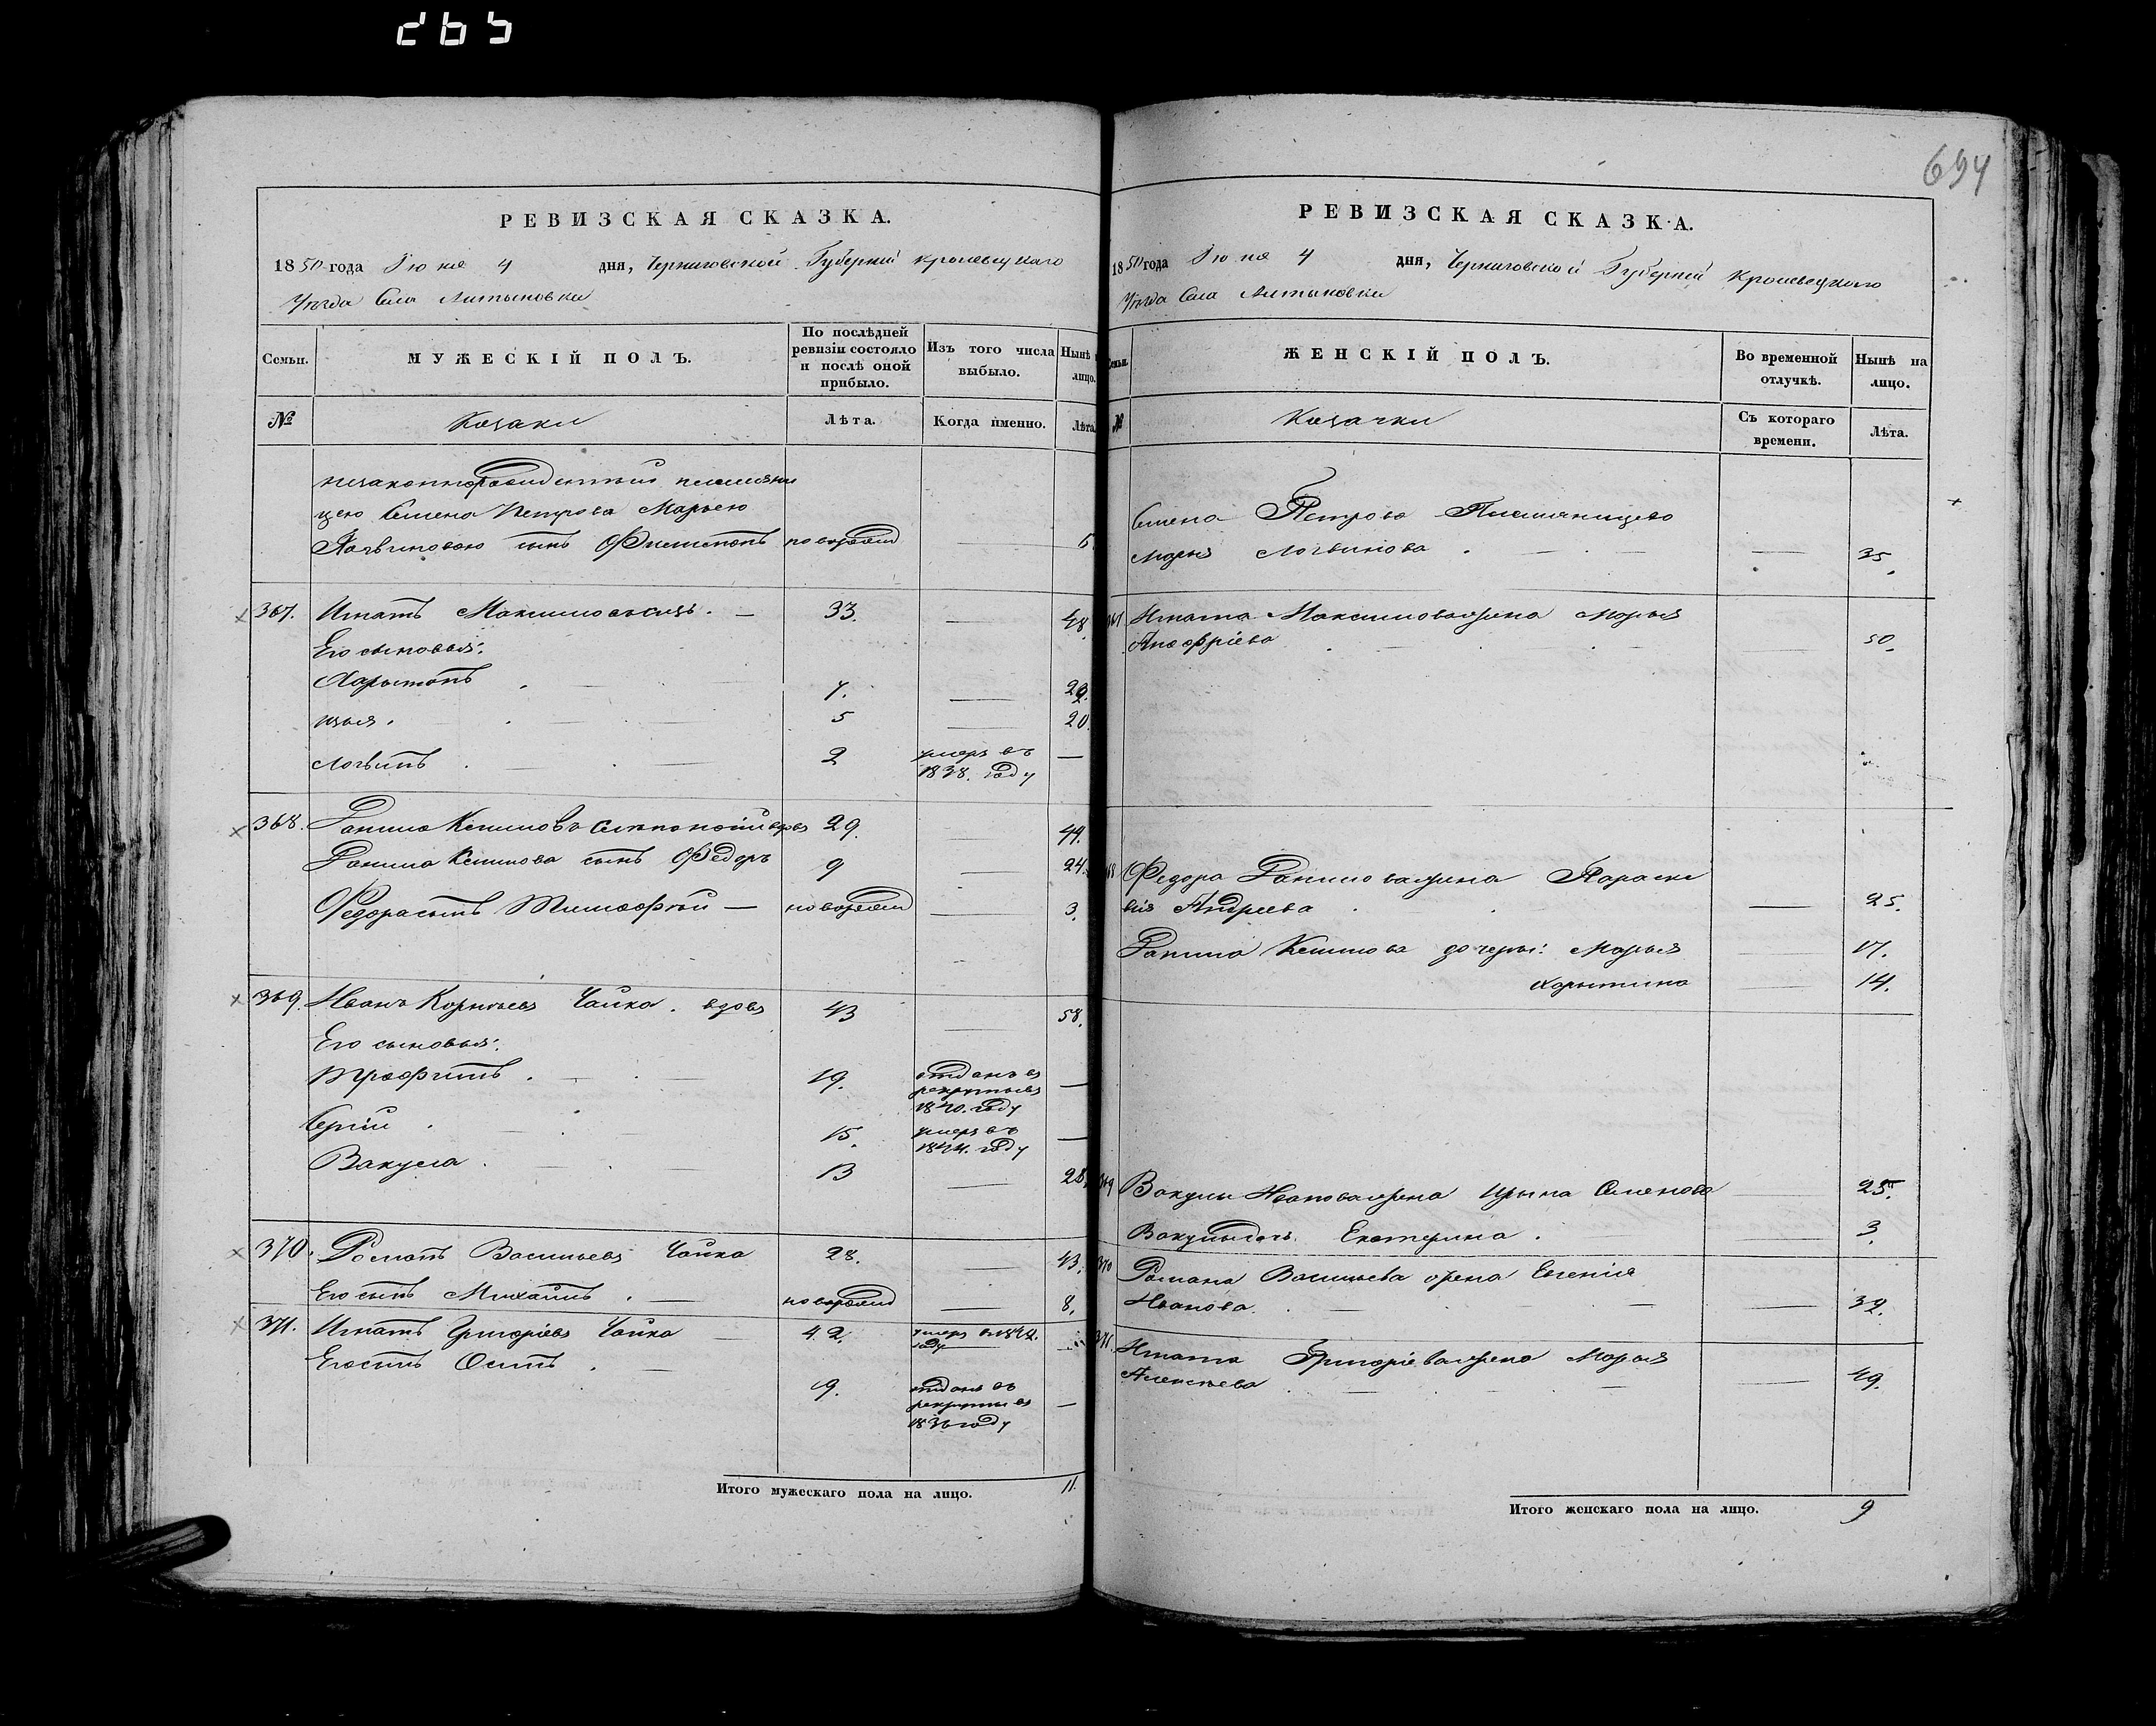 694
РЕВИЗСКАЯ СКАЗКА.
1850 года Іюня 4 дня, Черниговской Губерніи Кролевецкаго
Уѣзда Села Литвиновки
Семьи.
МУЖЕСКІЙ ПОЛЪ.
По послѣдней ревизіи состояло и послѣ оной прибыло.
Изъ того числа выбыло.
Нынѣ лицо.
№
Козаки
Лѣта.
Когда именно.
Лѣта.
незаконнорожденный племянни
цею Семена Петрова Марьею
Логвиновою сынъ Филимонъ новорожд
367. Игнатъ Максимовъ 33. 48.
Его сыновья:
Харитонъ 7. 22.
Илья 5 20.
Логвинъ 2 умеръ въ —
1838. году
368. Данила Климовъ вдовъ 29. 44.
Данила Климова сынъ Федоръ 9 24.
Федора сынъ Тимофѣй — новорожд 3.
369. Иванъ Корнѣевъ Чайка. вдовъ 43 58.
Его сыновья:
Трофимъ 19. отданъ въ —
рекруты въ
1840. году
Сергій 15. умеръ въ —
1844. году
Вакула 13 28.
370. Романъ Васильевъ Чайка 28. 43.
Его сынъ Михаилъ новорожд 8.
371. Игнатъ Григорьевъ Чайка 42. умеръ в
году
Его сынъ Осипъ
19. отданъ въ —
рекруты въ
1836 году
Итого мужескаго пола на лицо. 11.
РЕВИЗСКАЯ СКАЗКА.
1850 года Іюня 4 дня, Черниговской Губерніи Кролевецкаго
Уѣзда Села Литвиновки
Семьи.
ЖЕНСКІЙ ПОЛЪ.
Во временной отлучкѣ.
Нынѣ на лицо.
№
Козачки
Съ котораго времени.
Лѣта.
Семена Петрова Племянница
Марья Логвинова 35.
Игната Максимова жена Марья
Анофріева 50.
Федора Данилова жена Параске
вія Андреева 25.
Данила Климова дочери: Марья 17.
Харитина 14.
369 Вакулы Иванова жена Ирина Семенова 25.
Вакулы дочь Екатерина 3.
370 Романа Васильева жена Евгенія
Иванова 39.
371. Игната Григорьева жена Марья
Алексѣева 49.
Итого женскаго пола на лицо. 9